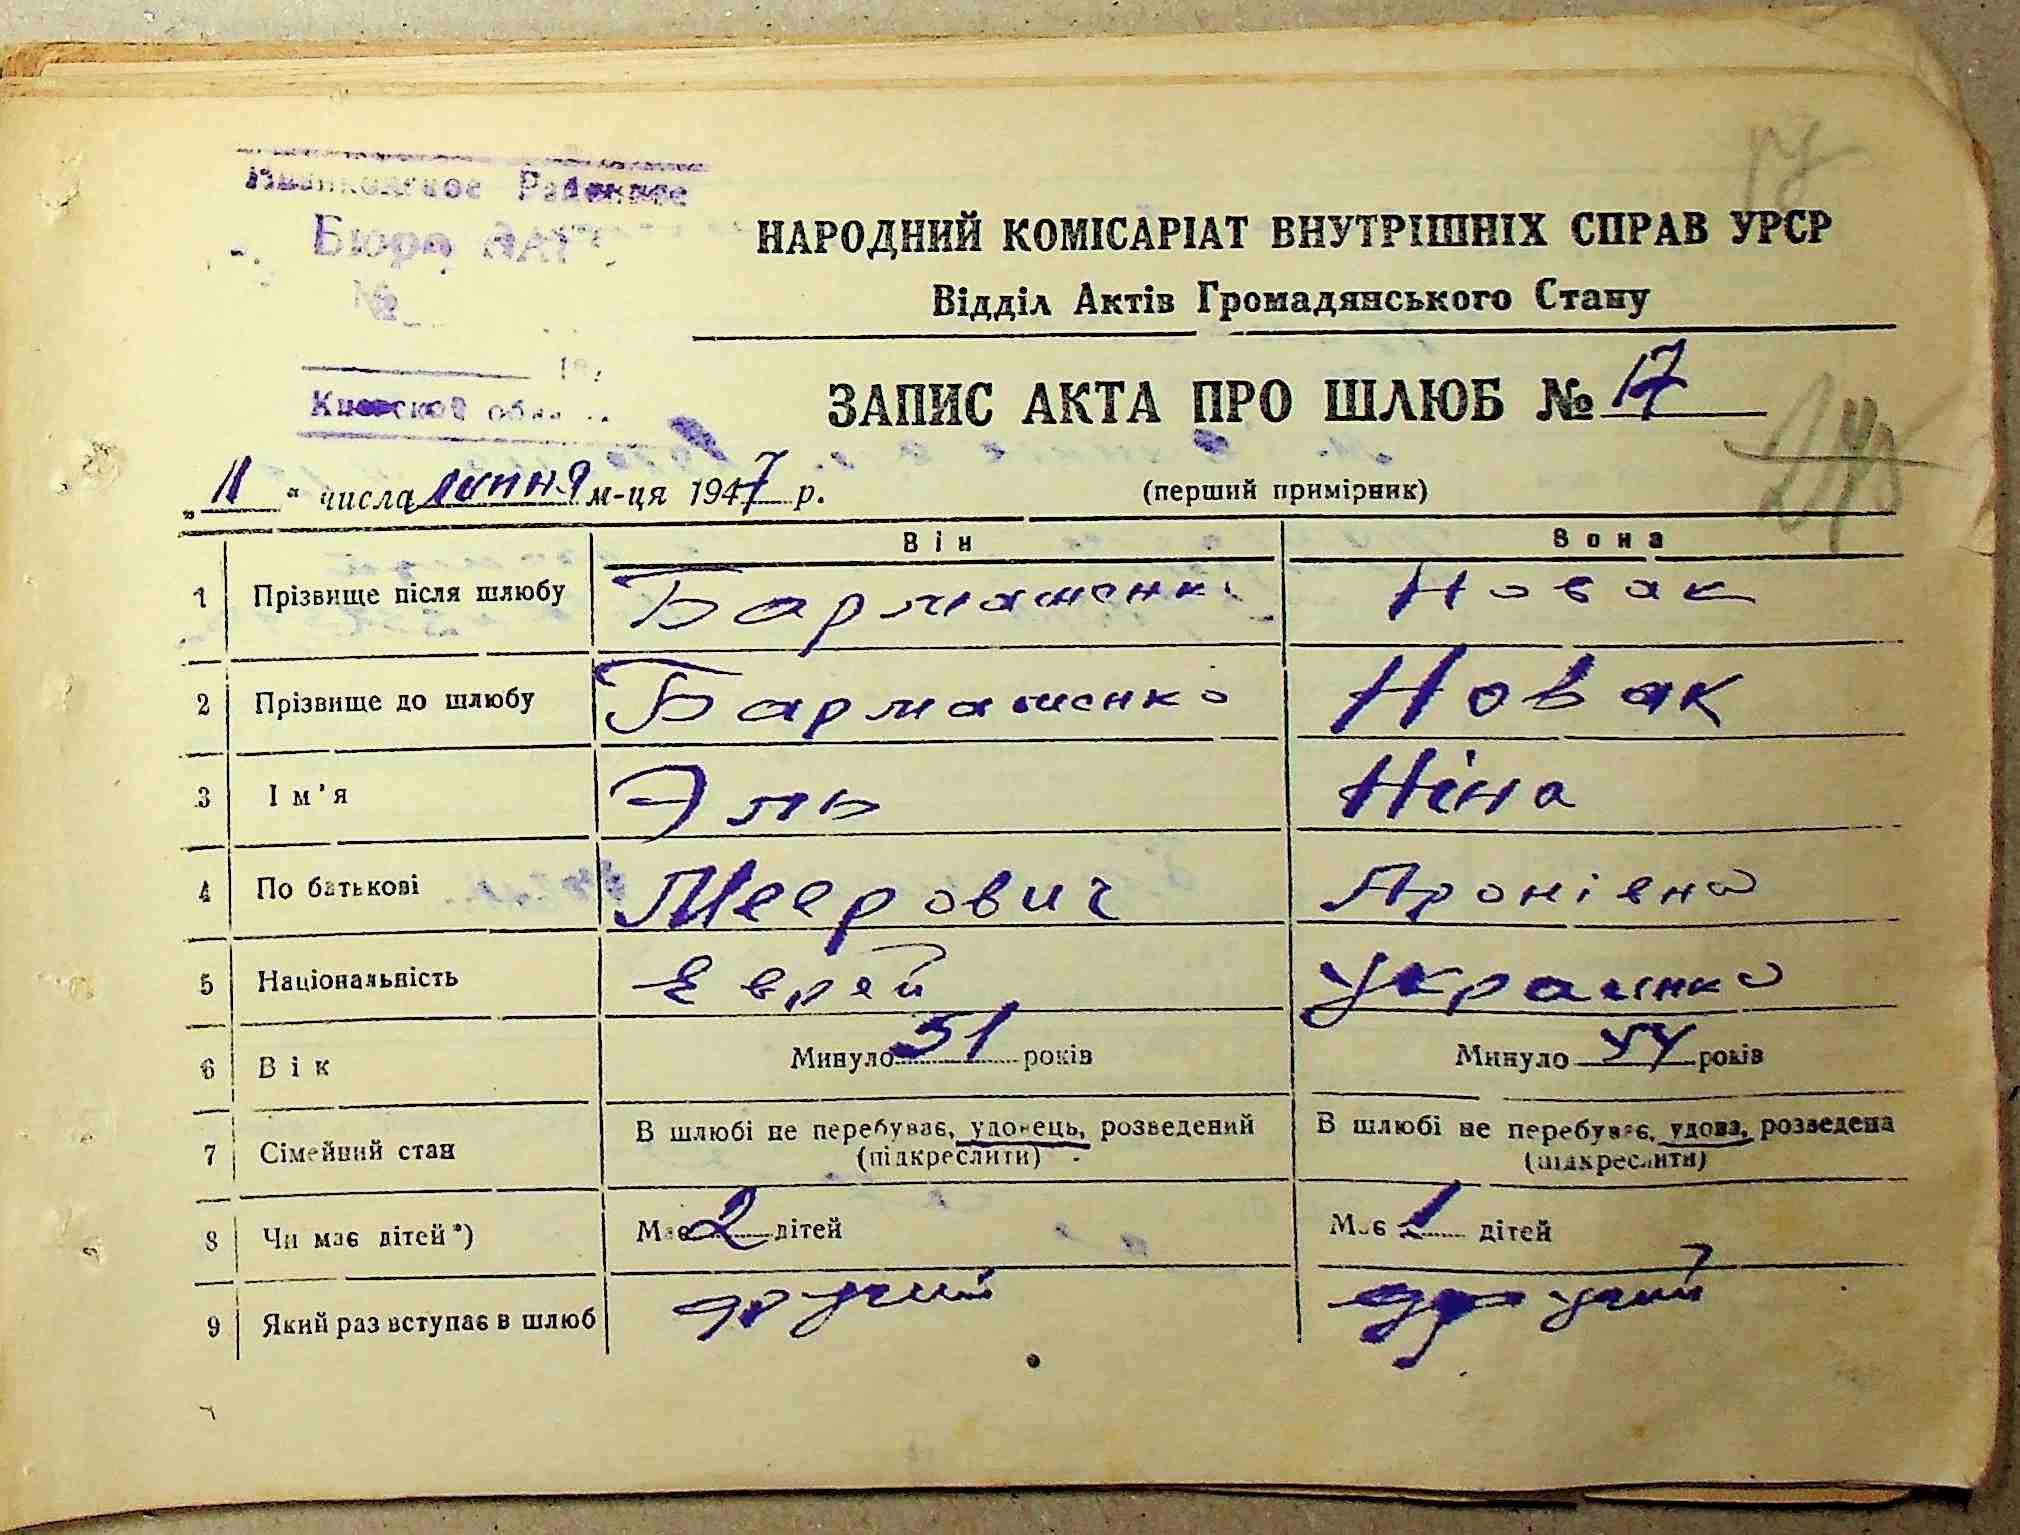 Иванковское Районное
Бюро ЗАГС
№
Киевской обла
17
НАРОДНИЙ КОМІСАРІАТ ВНУТРІШНІХ СПРАВ УРСР
Відділ Актів Громадянського Стану
ЗАПИС АКТА ПРО ШЛЮБ № 17
„ 11 “ числа липня м-ця 1947 р. (перший примірник)
Він Вона
1 Прізвище після шлюбу Бармашенко Новак
2 Прізвище до шлюбу Бармашенко Новак
3 Ім'я Эль Ніна
4 По батькові Меерович Аронівна
5 Національність Еврей Украинка
6 Вік Минуло 51 років Минуло 44 років
7 Сімейний стан В шлюбі не перебуває, удовець, розведений В шлюбі не перебуває, удова, розведена
(підкреслити) (підкреслити)
8 Чи має дітей*) Має 2 дітей Має 1 дітей
9 Який раз вступає в шлюб другий другий